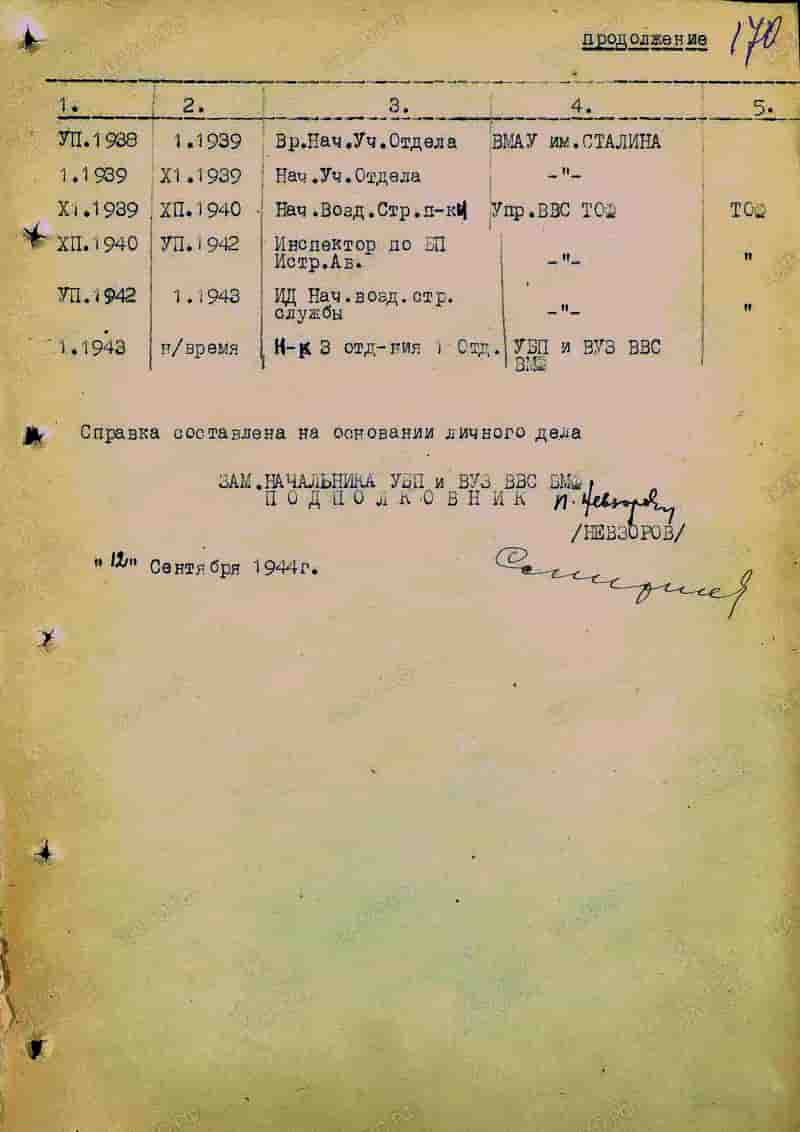 продолжение 170
1. 2. 3. 4. 5.
УП.1938 1.1939 Вр.Нач.Уч.Отдела ВМАУ им.СТАЛИНА
1.1939 Х1.1939 Нач.Уч.Отдела -"-
Х1.1939 ХП.1940 Нач.Возд.Стр.п-ки Упр.ВВС ТОФ ТОФ
ХП.1940 УП.1942 Инспектор по БП
Истр.Ав. -"- "
УП.1942 1.1943 ИД Нач.возд.стр.
службы -"- "
1.1943 н/время Н-к 3 отд-ния 1 Отд. УБП и ВУЗ ВВС
ВМФ
Справка составлена на основании личного дела
ЗАМ.НАЧАЛЬНИКА УБП и ВУЗ ВВС ВМФ,
П О Д П О Л К О В Н И К п. Невзоров
/НЕВЗОРОВ/
"12" Сентября 1944г.